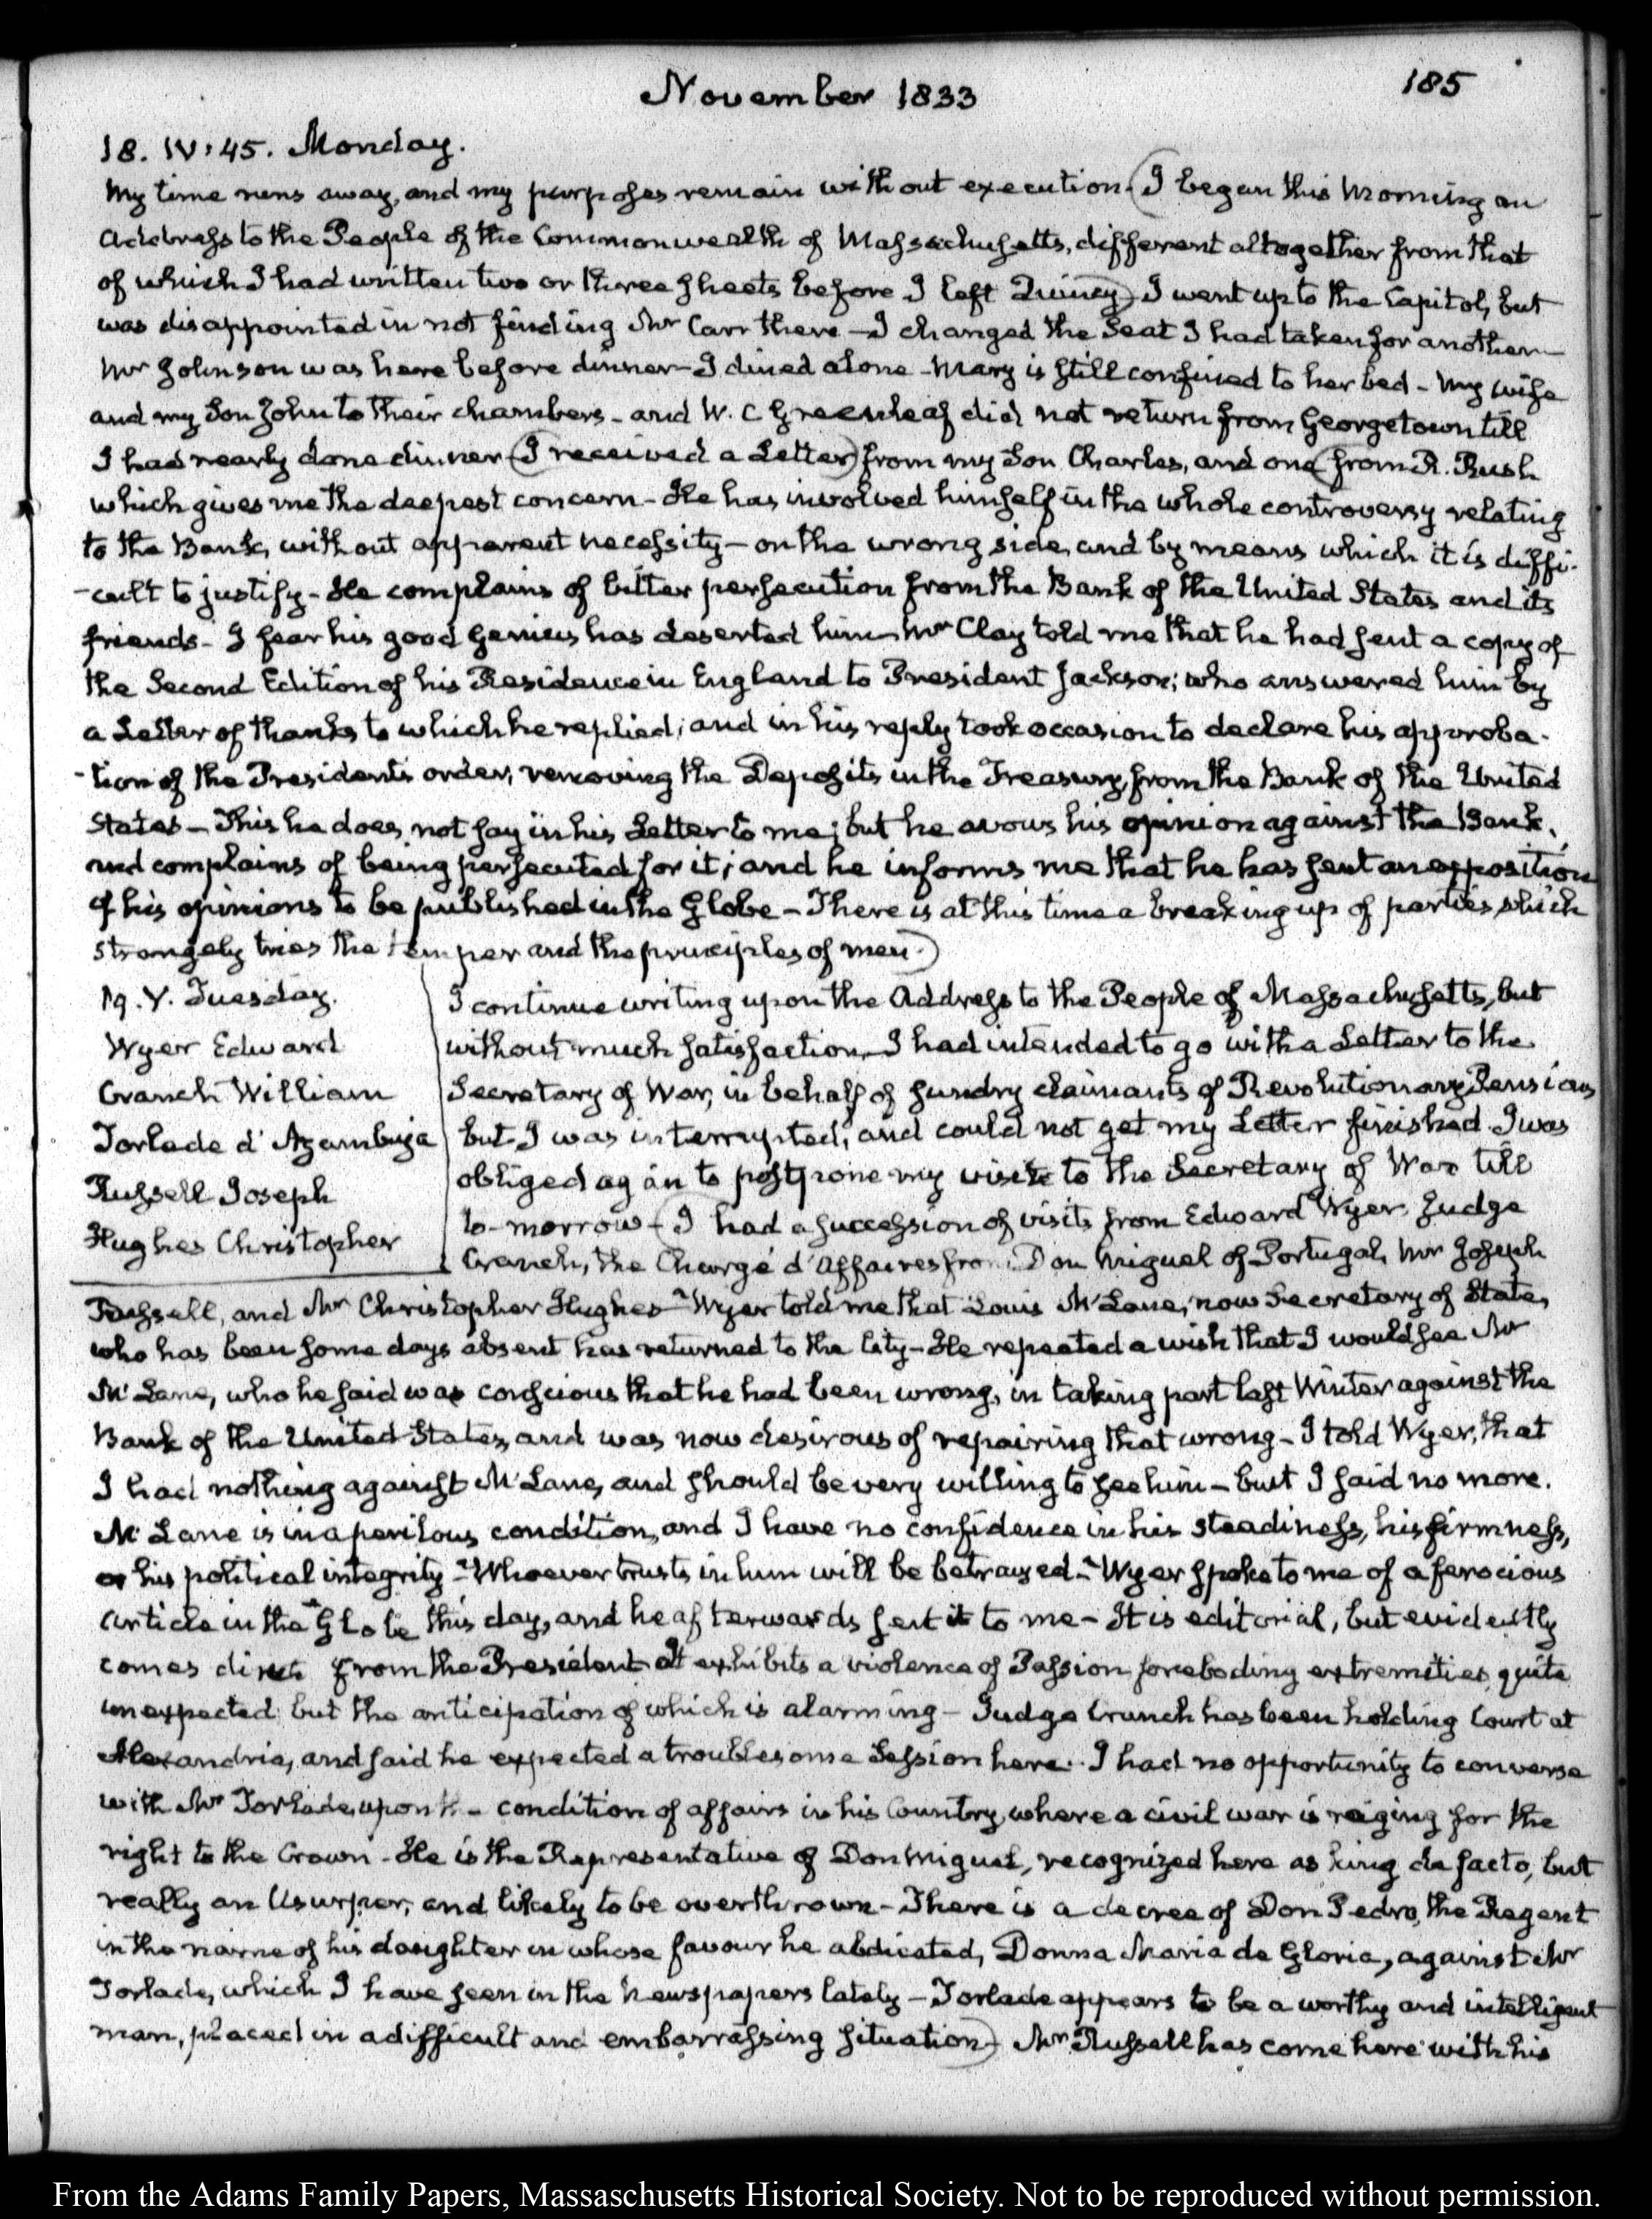 November 1833
185
18. IV:45. Monday.
My time runs away, and my purposes remain without execution. (I began this Morning an
Address to the People of the Commonwealth of Massachusetts, different altogether from that
of which I had written two or three sheets before I left Quincy) I went up to the Capitol, but
was disappointed in not finding Mr Carr there — I changed the Seat I had taken for another —
Mr Johnson was here before dinner — I dined alone - Mary is still confined to her bed - My wife
and my Son John to their chambers - and W. C Greenleaf did not return from Georgetown till
I had nearly done dinner (I received a Letter) from my Son Charles, and one (from R. Rush
which gives me the deepest concern - He has involved himself in the whole controversy relating
to the Bank, without apparent necessity — on the wrong side, and by means which it is diffi-
-cult to justify - He complains of bitter persecution from the Bank of the United States and its
friends - I fear his good Genius has deserted him Mr Clay told me that he had sent a copy of
the Second Edition of his Residence in England to President Jackson; who answered him by
a Letter of thanks to which he replied; and in his reply took occasion to declare his approba-
-tion of the President's order, removing the Deposits in the Treasury, from the Bank of the United
States — This he does not say in his Letter to me; but he avows his opinion against the Bank,
and complains of being persecuted for it; and he informs me that he has sent an exposition
of his opinions to be published in the Globe — There is at this time a breaking up of parties, which
strangely tries the temper and the principles of men.)
19. V. Tuesday.
Wyer Edward
Cranch William
Torlade d'Azambuja
Russell Joseph
Hughes Christopher
I continue writing upon the Address to the People of Massachusetts, but
without much satisfaction — I had intended to go with a Letter to the
Secretary of War, in behalf of sundry claimants of Revolutionary Pensions
but I was interrupted, and could not get my Letter finished. I was
obliged again to postpone my visit to the Secretary of War till
to-morrow — (I had a succession of visits from Edward Wyer, Judge
Cranch, the Chargé d'Affaires from Don Miguel of Portugal, Mr Joseph
Russell, and Mr Christopher Hughes — Wyer told me that Louis McLane, now Secretary of State,
who has been some days absent has returned to the City — He repeated a wish that I would see Mr
McLane, who he said was conscious that he had been wrong, in taking part last Winter against the
Bank of the United States, and was now desirous of repairing that wrong — I told Wyer, that
I had nothing against McLane, and should be very willing to see him — but I said no more.
McLane is in a perilous condition, and I have no confidence in his steadiness, his firmness,
or his political integrity — Whoever trusts in him will be betrayed — Wyer spoke to me of a ferocious
article in the Globe this day, and he afterwards sent it to me — It is editorial, but evidently
comes direct from the President It exhibits a violence of Passion foreboding extremities, quite
unexpected but the anticipation of which is alarming — Judge Cranch has been holding Court at
Alexandria, and said he expected a troublesome Session here. I had no opportunity to converse
with Mr Torlade, upon the condition of affairs in his Country, where a civil war is raging for the
right to the Crown - He is the Representative of Don Miguel, recognized here as king de facto, but
really an Usurper, and likely to be overthrown — There is a decree of Don Pedro, the Regent
in the name of his daughter in whose favour he abdicated, Donna Maria da Gloria, against Mr
Torlade, which I have seen in the Newspapers lately — Torlade appears to be a worthy and intelligent
man, placed in a difficult and embarrassing situation) Mr Russell has come here with his
From the Adams Family Papers, Massaschusetts Historical Society. Not to be reproduced without permission.